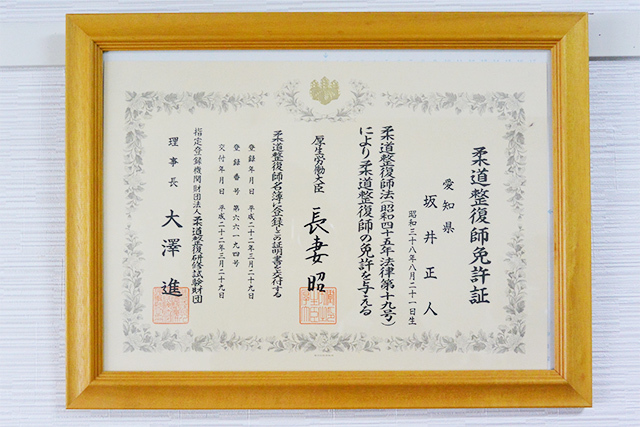 柔道整復師免許証
愛知県
坂井正人
昭和三十八年八月二十一日生
柔道整復師法(昭和四十五年法律第十九号)
により柔道整復師の免許を与える
厚生労働大臣
長妻昭
柔道整復師名簿に登録しこの証明書を交付する
登録年月日 平成二十二年三月二十九日
登録番号 第六六一九四号
交付年月日 平成二十二年三月二十九日
指定登録機関財団法人柔道整復研修試験財団
理事長 大澤進